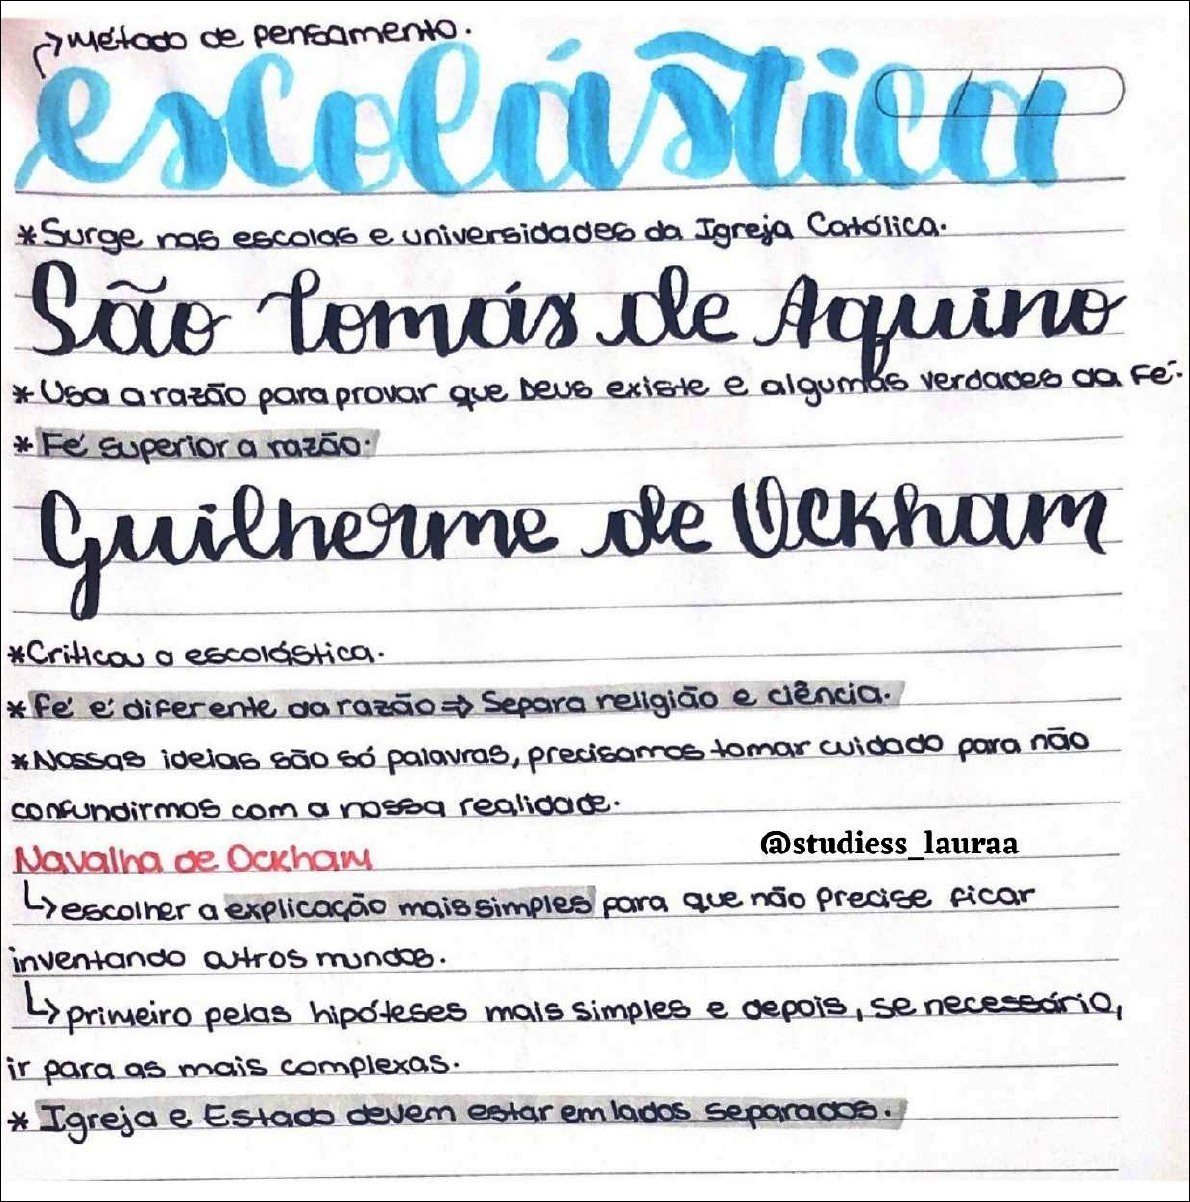 método de pensamento.
escolástica
*Surge nas escolas e universidades da Igreja Católica.
São Tomás de Aquino
*Usa a razão para provar que Deus existe e algumas verdades da Fé.
*Fé superior a razão.
Guilherme de Ockham
*Criticou a escolástica.
*Fé é diferente da razão⇒ Separa religião e ciência.
*Nossas ideias são só palavras, precisamos tomar cuidado para não
confundirmos com a nossa realidade.
@studiess_lauraa
Navalha de Ockham
↳escolher a explicação mais simples para que não precise ficar
inventando outros mundos.
↳primeiro pelas hipóteses mais simples e depois, se necessário,
ir para as mais complexas.
*Igreja e Estado devem estar em lados separados.